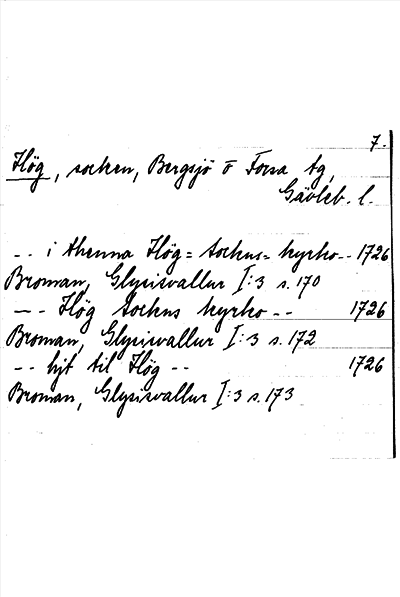 7.
Hög, socken, Bergsjö o Forsa tg,
Gävleb. l.
-- i thenna Hög=Sochns=kyrko -- 1726
Broman, Glysisvallur I:3 s. 170
-- Hög Sochns kyrko -- 1726
Broman, Glysisvallur I:3 s. 172
-- hjt til Hög -- 1726
Broman, Glysisvallur I:3 s. 173